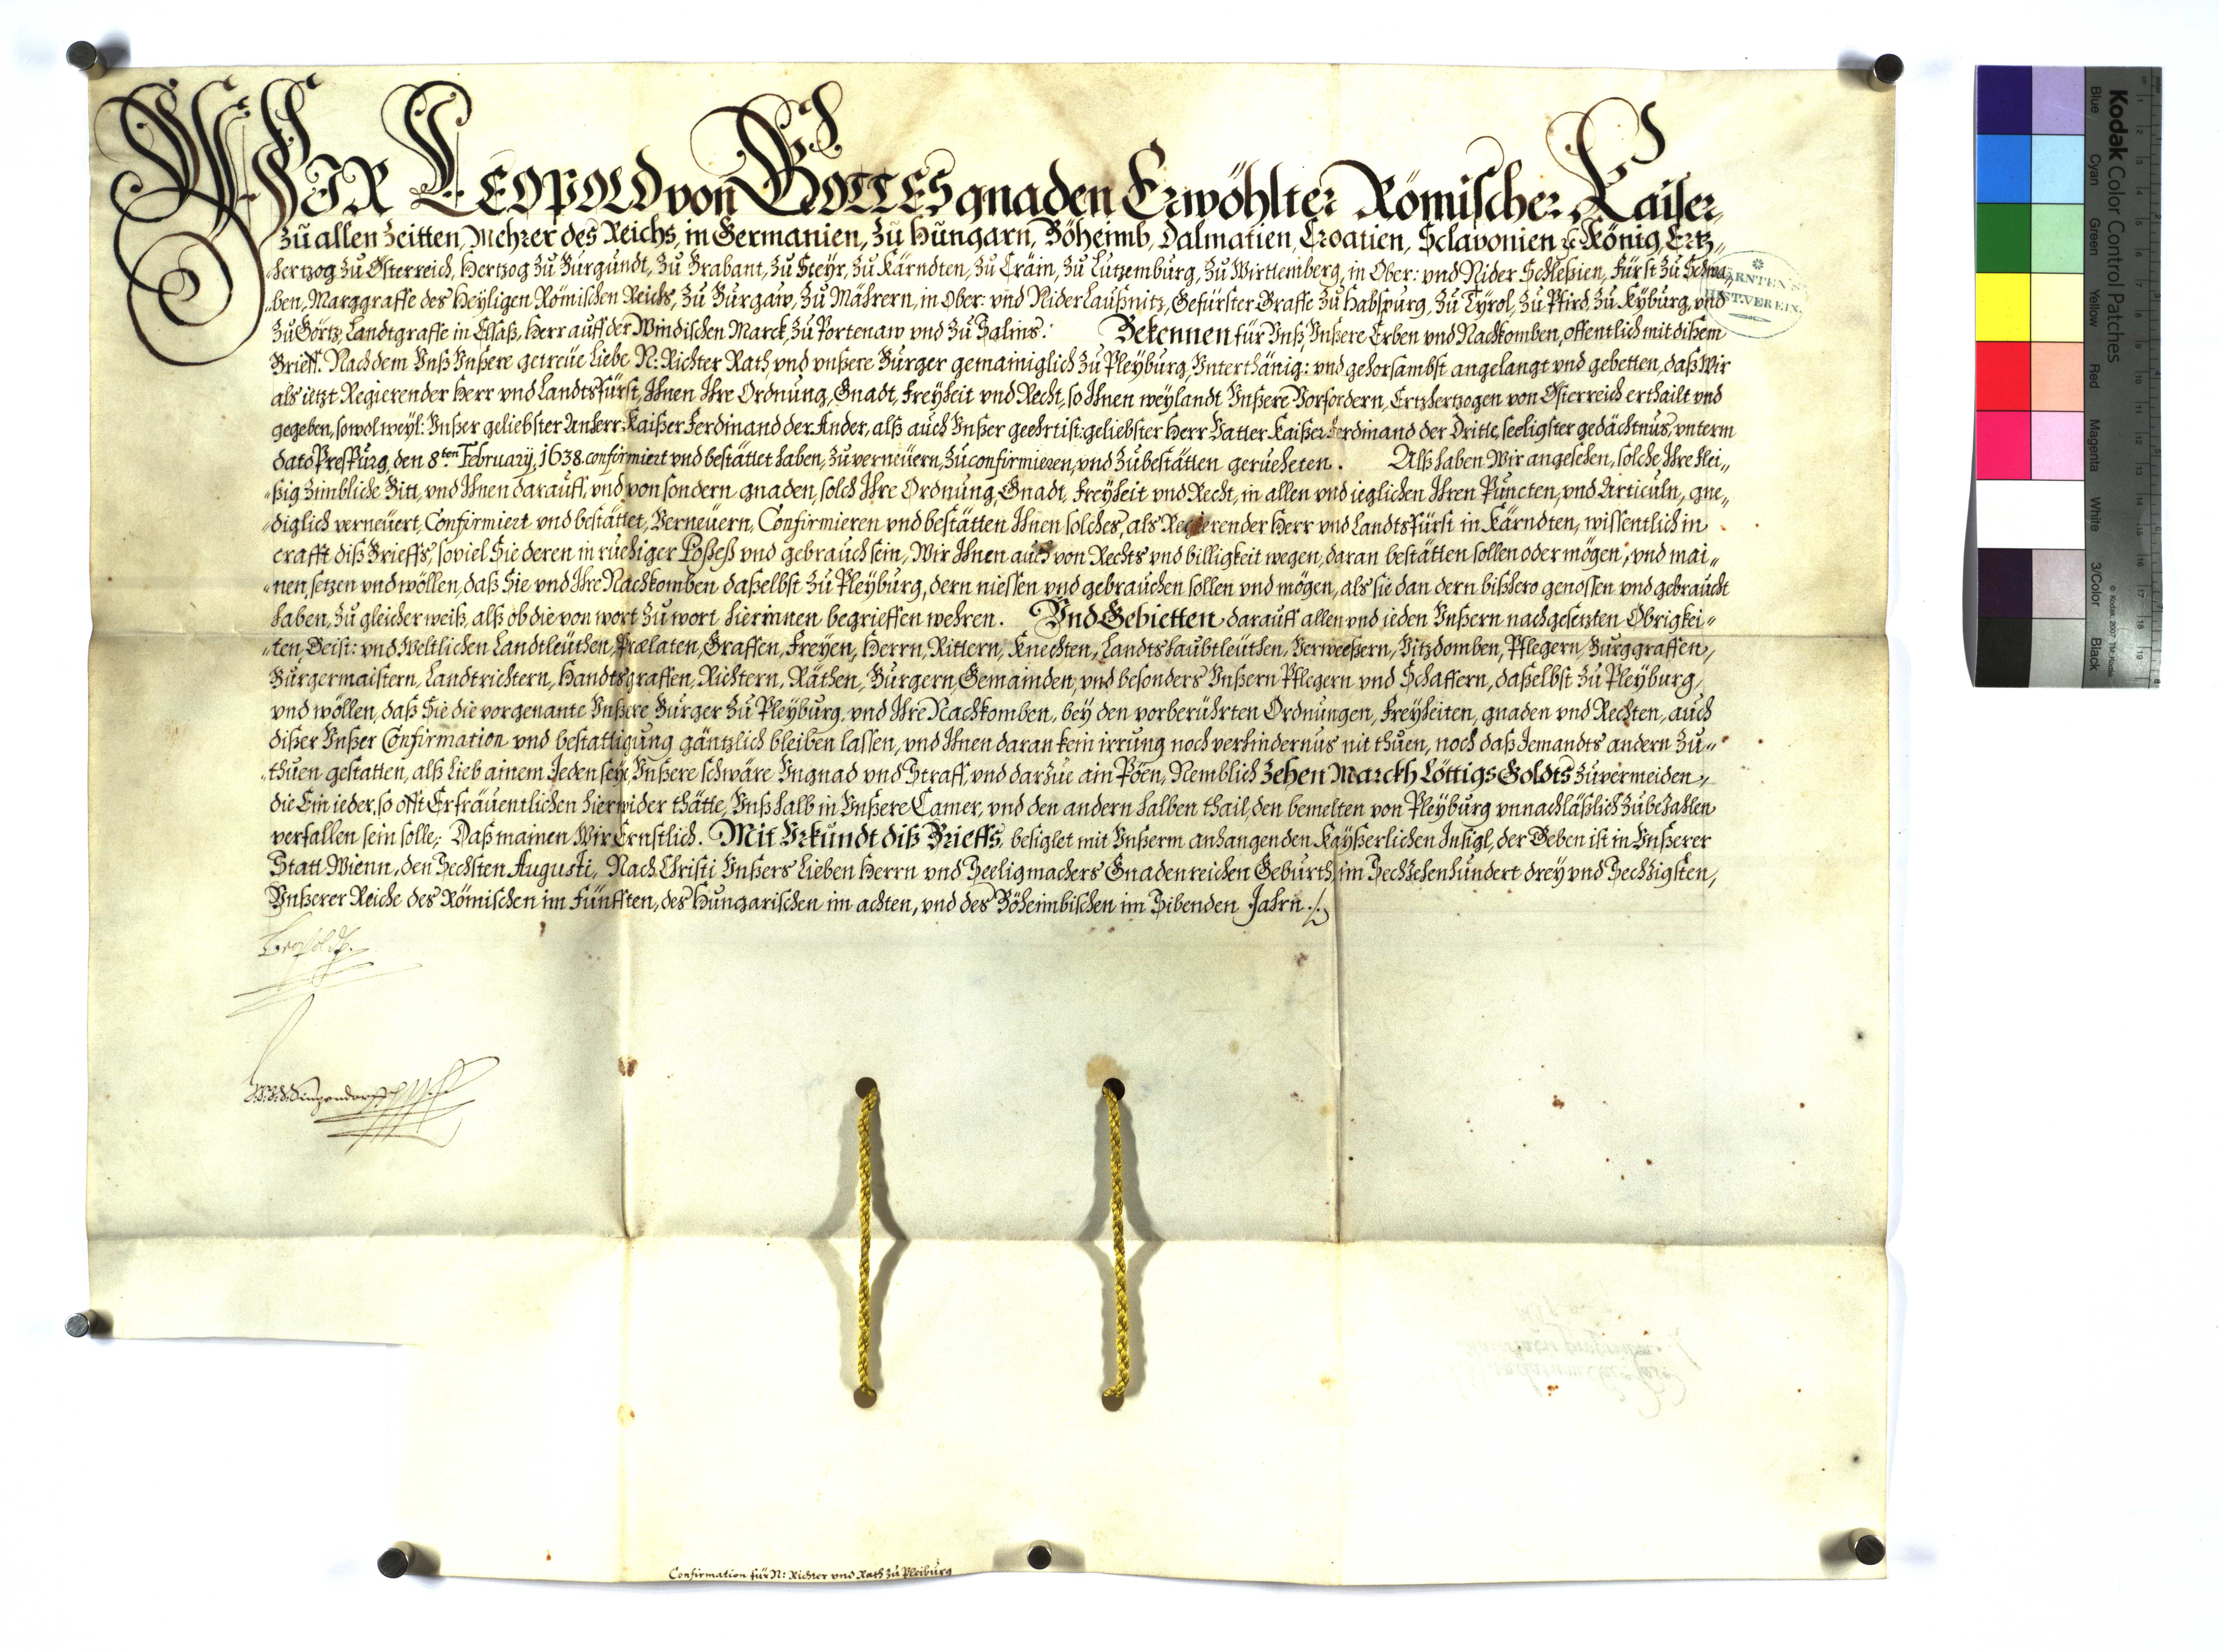 WIR LEOPOLD von GOTTES gnaden Erwöhlter Römischer Kaiser,
zu allen Zeitten, Mehrer des Reichs, in Germanien, zu Hungarn, Böheimb, Dalmatien, Croatien, Sclavonien &c König, Ertz„
„hertzog zu Österreich, Hertzog zu Burgundt, zu Brabant, zu Steyr, zu Kärndten, zu Cräin, zu Lutzemburg, zu Wirttemberg, in Ober: vnd Nider Schlesien, Fürst zu Schwa„
„ben, Marggraffe des Heyligen Römischen Reichs, zu Burgaw, zu Mährern, in Ober: vnd Nider Laußnitz, Gefürster Graffe zu Habspurg, zu Tyrol, zu Pfird, zu Kyburg, vnd
zu Görtz, Landtgraffe in Elsaß, Herr auff der Windischen Marck, zu Portenaw vnd zu Salins: Bekennen für Vnß, Vnßere Erben vnd Nachkomben, offentlich mit disem
Brieff. Nachdem Vnß Vnßere getreüe Liebe N: Richter Rath, vnd vnßere Burger gemainiglich zu Pleyburg, Vnterthänig: vnd gehorsambst angelangt vnd gebetten, daß Wir
als ietzt Regierender Herr vnd Landtsfürst, Ihnen Ihre Ordnung, Gnadt, Freyheit vnd Recht, so Ihnen weylandt Vnßere Vorfordern, Ertzhertzogen von Österreich erthailt vnd
gegeben, sowol weyl: Vnßer geliebster Anherr Kaißer Ferdinand der Ander, alß auch Vnßer geehrtist: geliebster Herr Vatter Kaißer Ferdinand der Dritte, seeligster gedächtnus, vnterm
dato Preßpurg, den 8ten February, 1638. confirmiert vnd bestättet haben, zuverneüern, zu confirmieren, vnd zubestätten gerueheten. Alß haben Wir angesehen, solche Ihre flei„
„ßig zimbliche Bitt, vnd Ihnen darauff, vnd von sondern gnaden, solch Ihre Ordnung, Gnadt, Freyheit vnd Recht, in allen vnd ieglichen Ihren Puncten, vnd Articuln, gne„
„diglich verneüert, Confirmiert vnd bestättet, Verneüern, Confirmieren vnd bestätten Ihnen solches, als Regierender Herr vnd Landtsfürst in Kärndten, wissentlich in
crafft diß Brieffs, soviel Sie deren in ruehiger Posseß vnd gebrauch sein, Wir Ihnen auch von Rechts vnd billigkeit wegen, daran bestätten sollen oder mögen, vnd mai„
„nen, setzen vnd wöllen, daß Sie vnd Ihre Nachkomben daselbst zu Pleyburg, dern niessen vnd gebrauchen sollen vnd mögen, als sie dan dern bißhero genossen vnd gebraucht
haben, zu gleicherweiß, alß ob die von wort zu wort hierinnen begrieffen wehren. Vnd Gebietten darauff allen vnd ieden Vnßern nachgesetzten Obrigkei„
„ten Geist: vnd Weltlichen Landtleüthen, Prælaten, Graffen, Freyen, Herrn, Rittern, Knechten, Landtshaubtleüthen, Verweeßern, Vitzdomben, Pflegern, Burggraffen,
Burgermaistern, Landtrichtern, Handtsgraffen, Richtern, Räthen, Burgern, Gemainden, vnd besonders Vnßern Pflegern vnd Schaffern, daßelbst zu Pleyburg,
vnd wöllen, daß Sie die vorgenante Vnßere Burger zu Pleyburg, vnd Ihre Nachkomben, bey den vorberührten Ordnungen, Freyheiten, gnaden vnd Rechten, auch
dißer Vnßer Confirmation vnd bestattigung gäntzlich bleiben lassen, vnd Ihnen daran kein irrung noch verhindernus nit thuen, noch daß Iemandts andern zu„
„thuen gestatten, alß lieb ainem Ieden seye, Vnßere schwäre Vngnad vnd Straff, vnd darzue ain Pöen, Nemblich Zehen Marckh Löttigs Goldts zuvermeiden,
die Ein ieder, so offt Er fräuentlichen hierwider thätte, Vnß halb in Vnßere Camer, vnd den andern halben thail, den bemelten von Pleyburg vnnachläßlich zubezahlen
verfallen sein solle, Daß mainen Wir Ernstlich. Mit Vrkundt diß Brieffs, besiglet mit Vnßerm anhangenden Kayßerlichen Insigl, der Geben ist in Vnßerer
Statt Wienn, den Sechsten Augusti, Nach Christi Vnßers Lieben Herrn vnd Seeligmachers Gnadenreichen Geburth, im Sechzehenhundert drey vnd Sechzigsten,
Vnßerer Reiche des Römischen im Fünfften, des Hungarischen im achten, vnd des Böheimbischen im Sibenden Jahrn.
Leopoldt
Confirmation für N: Richter vnd Rath zu Pleiburg
KÄRNTEN'S
HIST. VEREIN.
Kodak Color Control Patches
© Kodak, 2007 TM: Kodak
Blue Cyan Green Yellow Red Magenta White 3/Color Black